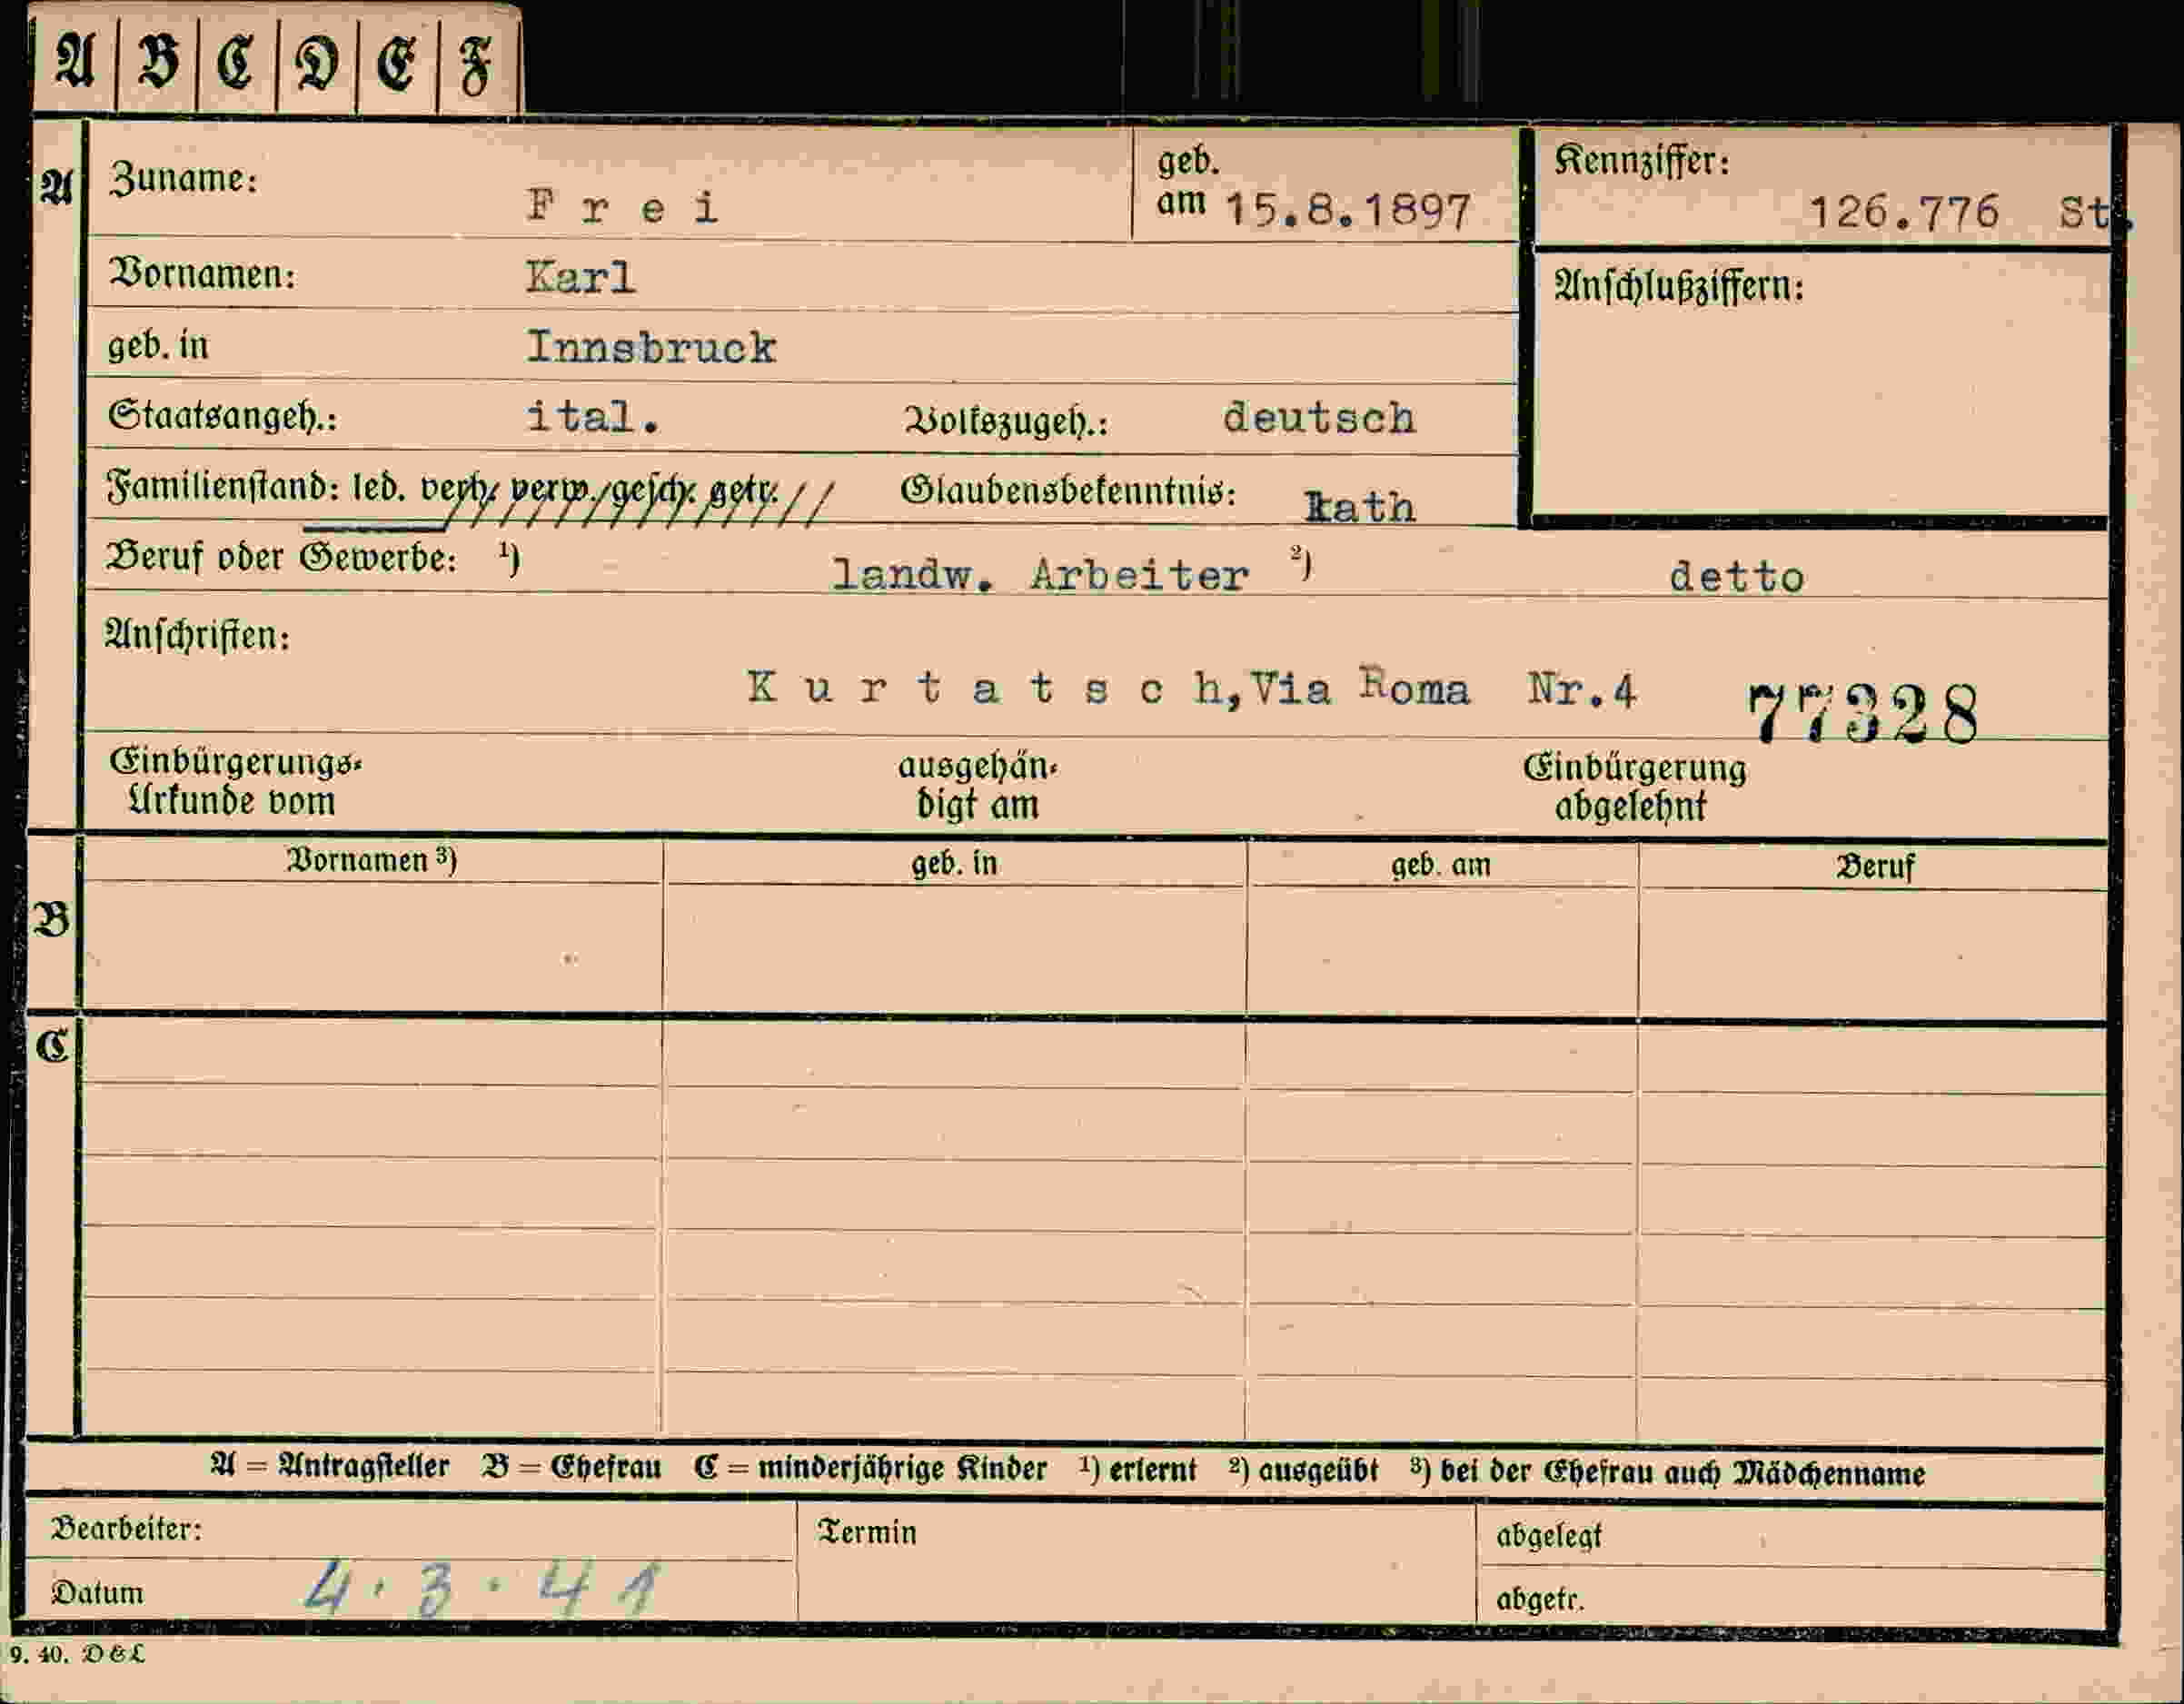 A B C D E F
A Zuname: F r e i geb. am 15.8.1897 Kennziffer: 126.776 St.
Vornamen: Karl Anschlußziffern:
geb. in Innsbruck
Staatsangeh.: ital. Volkszugeh.: deutsch
Familienstand: led. verh. verw. gesch. getr. Glaubensbekenntnis: kath
Beruf oder Gewerbe: 1) landw. Arbeiter 2) detto
Anschriften:
K u r t a t s c h, Via Roma Nr.4 77328
Einbürgerungs- ausgehän- Einbürgerung
Urkunde vom digt am abgelehnt
Vornamen 3) geb. in geb. am Beruf
B
C
A = Antragsteller B = Ehefrau C = minderjährige Kinder 1) erlernt 2) ausgeübt 3) bei der Ehefrau auch Mädchenname
Bearbeiter: Termin abgelegt
Datum 4.3.41 abgetr.
9. 40. D & L